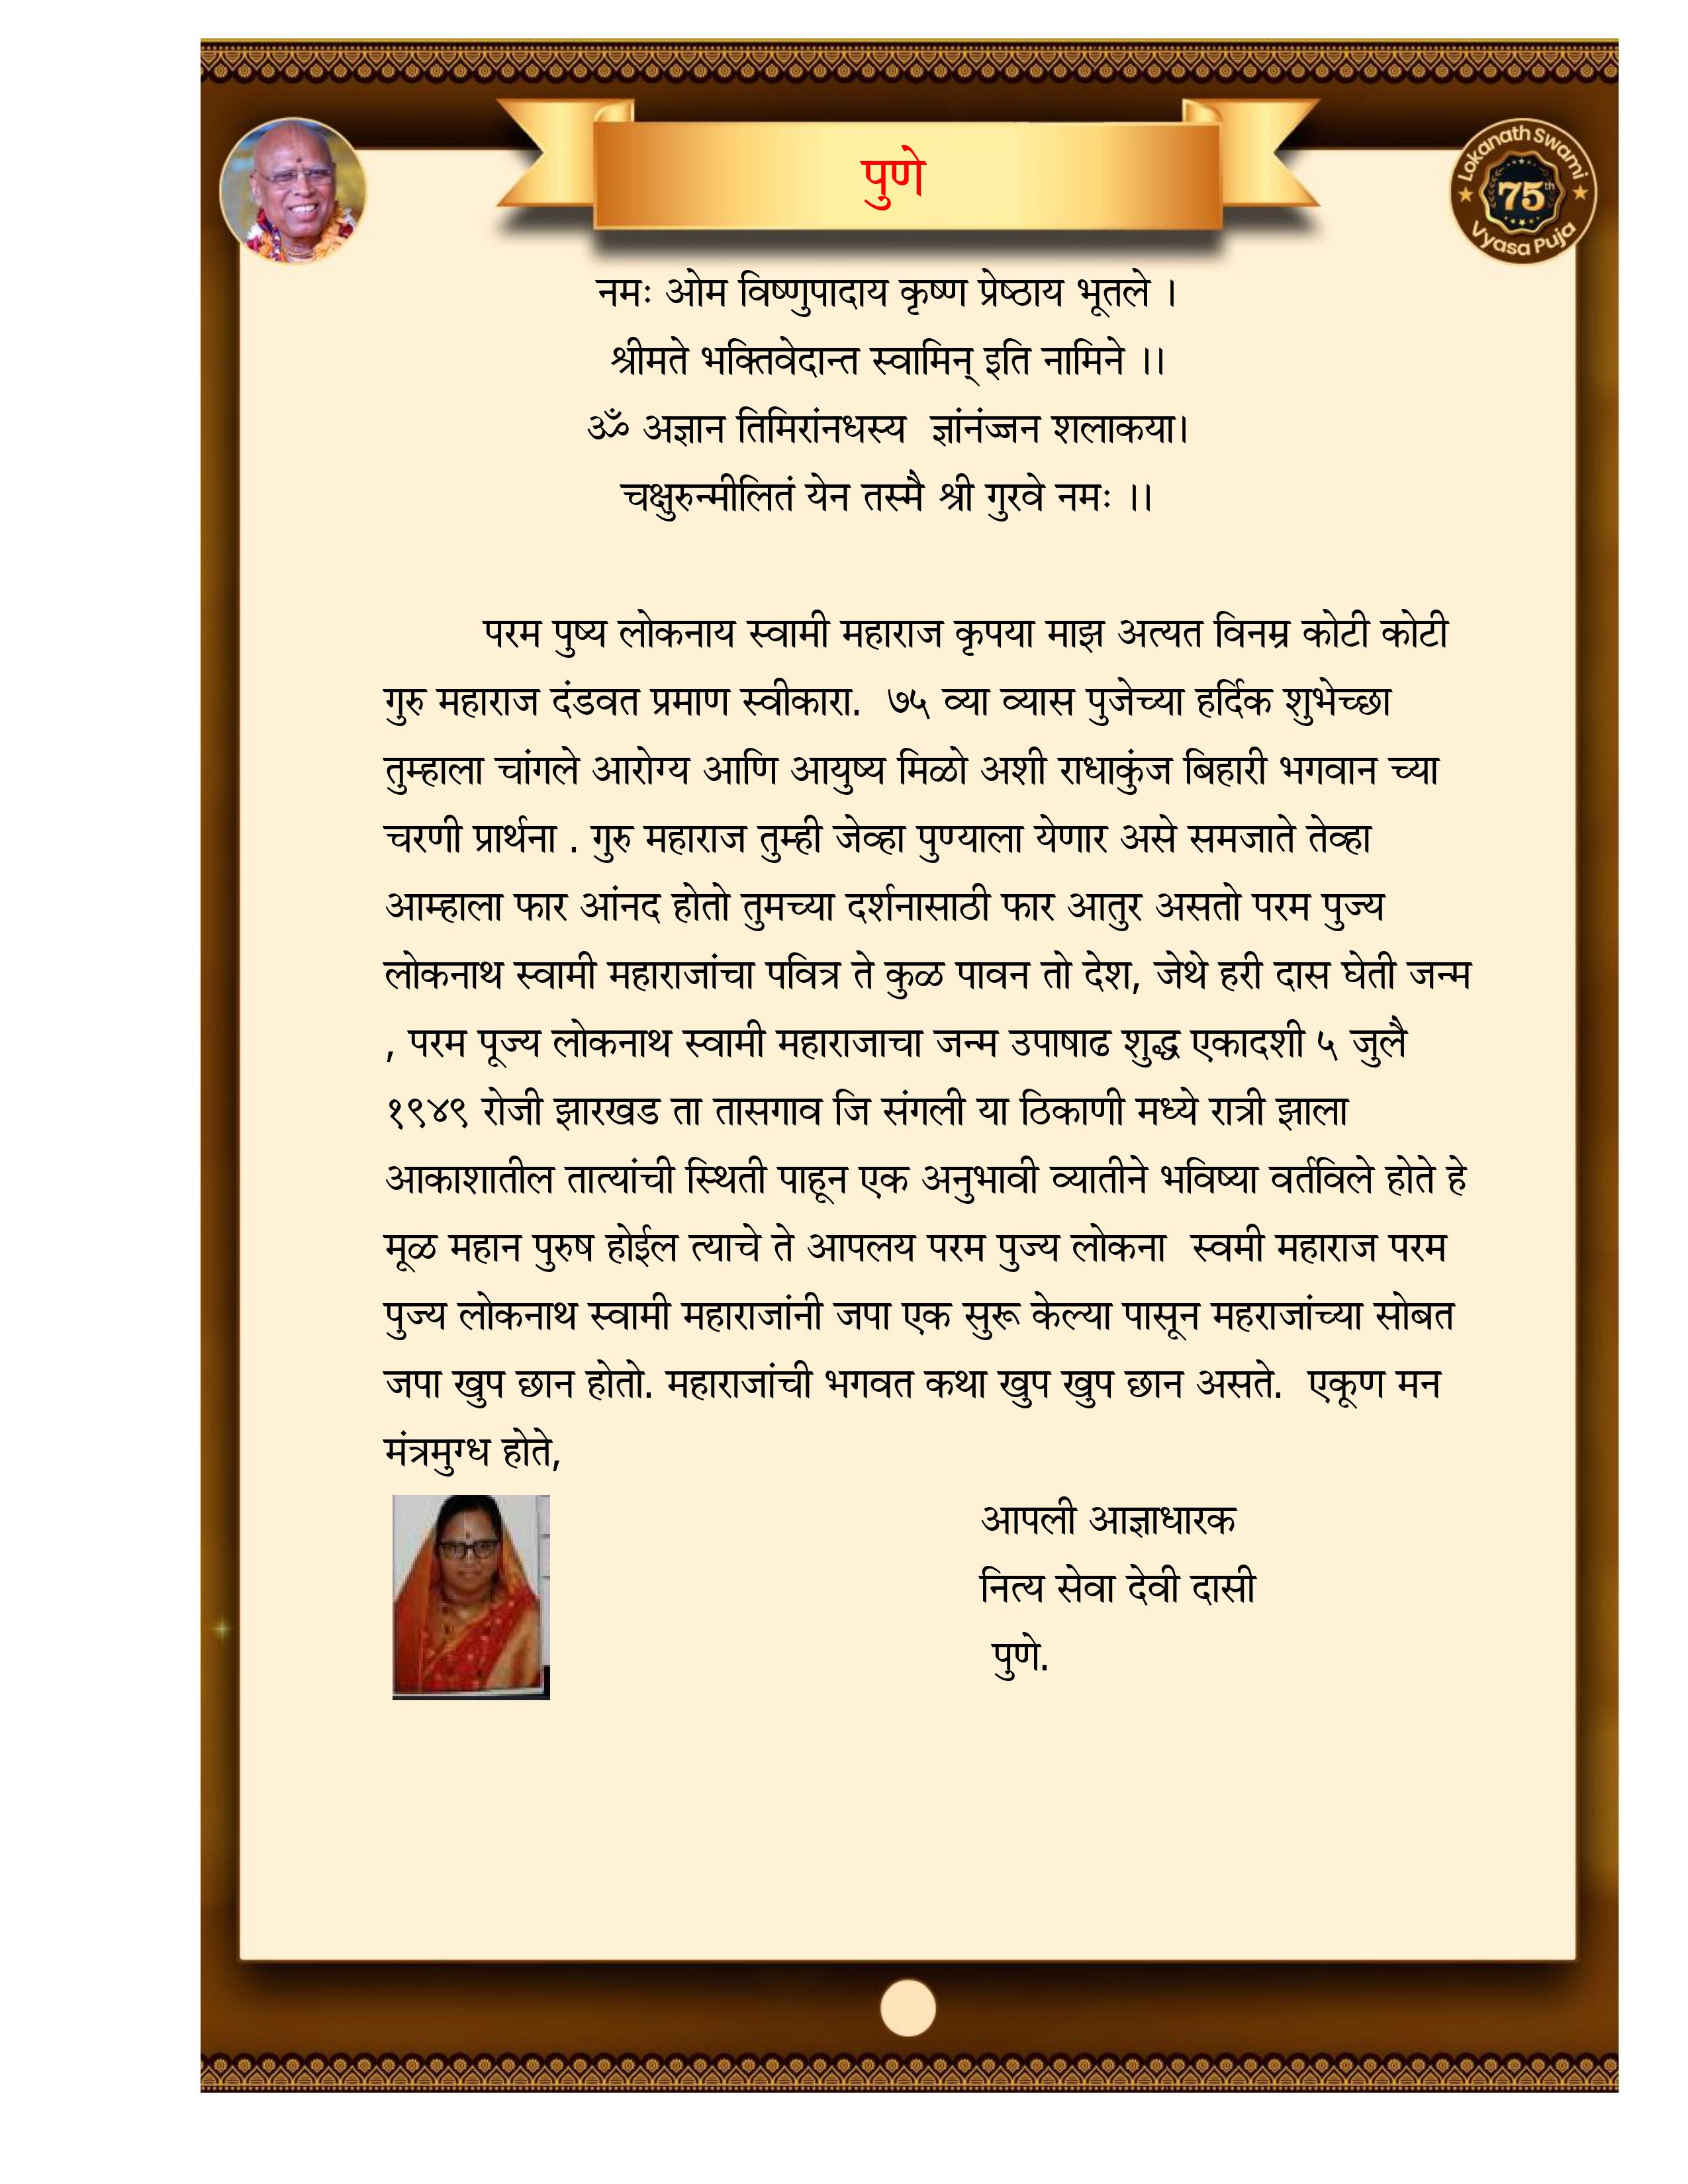 पुणे
Lokanath Swami
75th
Vyasa Puja
नमः ओम विष्णुपादाय कृष्ण प्रेष्ठाय भूतले ।
श्रीमते भक्तिवेदान्त स्वामिन् इति नामिने ।।
ॐ अज्ञान तिमिरांनधस्य  ज्ञांनंज्जन शलाकया।
चक्षुरुन्मीलितं येन तस्मै श्री गुरवे नमः ।।
परम पुष्य लोकनाय स्वामी महाराज कृपया माझ अत्यत विनम्र कोटी कोटी
गुरु महाराज दंडवत प्रमाण स्वीकारा.  ७५ व्या व्यास पुजेच्या हर्दिक शुभेच्छा
तुम्हाला चांगले आरोग्य आणि आयुष्य मिळो अशी राधाकुंज बिहारी भगवान च्या
चरणी प्रार्थना . गुरु महाराज तुम्ही जेव्हा पुण्याला येणार असे समजाते तेव्हा
आम्हाला फार आंनद होतो तुमच्या दर्शनासाठी फार आतुर असतो परम पुज्य
लोकनाथ स्वामी महाराजांचा पवित्र ते कुळ पावन तो देश, जेथे हरी दास घेती जन्म
, परम पूज्य लोकनाथ स्वामी महाराजाचा जन्म उपाषाढ शुद्ध एकादशी ५ जुलै
१९४९ रोजी झारखड ता तासगाव जि संगली या ठिकाणी मध्ये रात्री झाला
आकाशातील तात्यांची स्थिती पाहून एक अनुभावी व्यातीने भविष्या वर्तविले होते हे
मूळ महान पुरुष होईल त्याचे ते आपलय परम पुज्य लोकना  स्वमी महाराज परम
पुज्य लोकनाथ स्वामी महाराजांनी जपा एक सुरू केल्या पासून महराजांच्या सोबत
जपा खुप छान होतो. महाराजांची भगवत कथा खुप खुप छान असते.  एकूण मन
मंत्रमुग्ध होते,
आपली आज्ञाधारक
नित्य सेवा देवी दासी
पुणे.